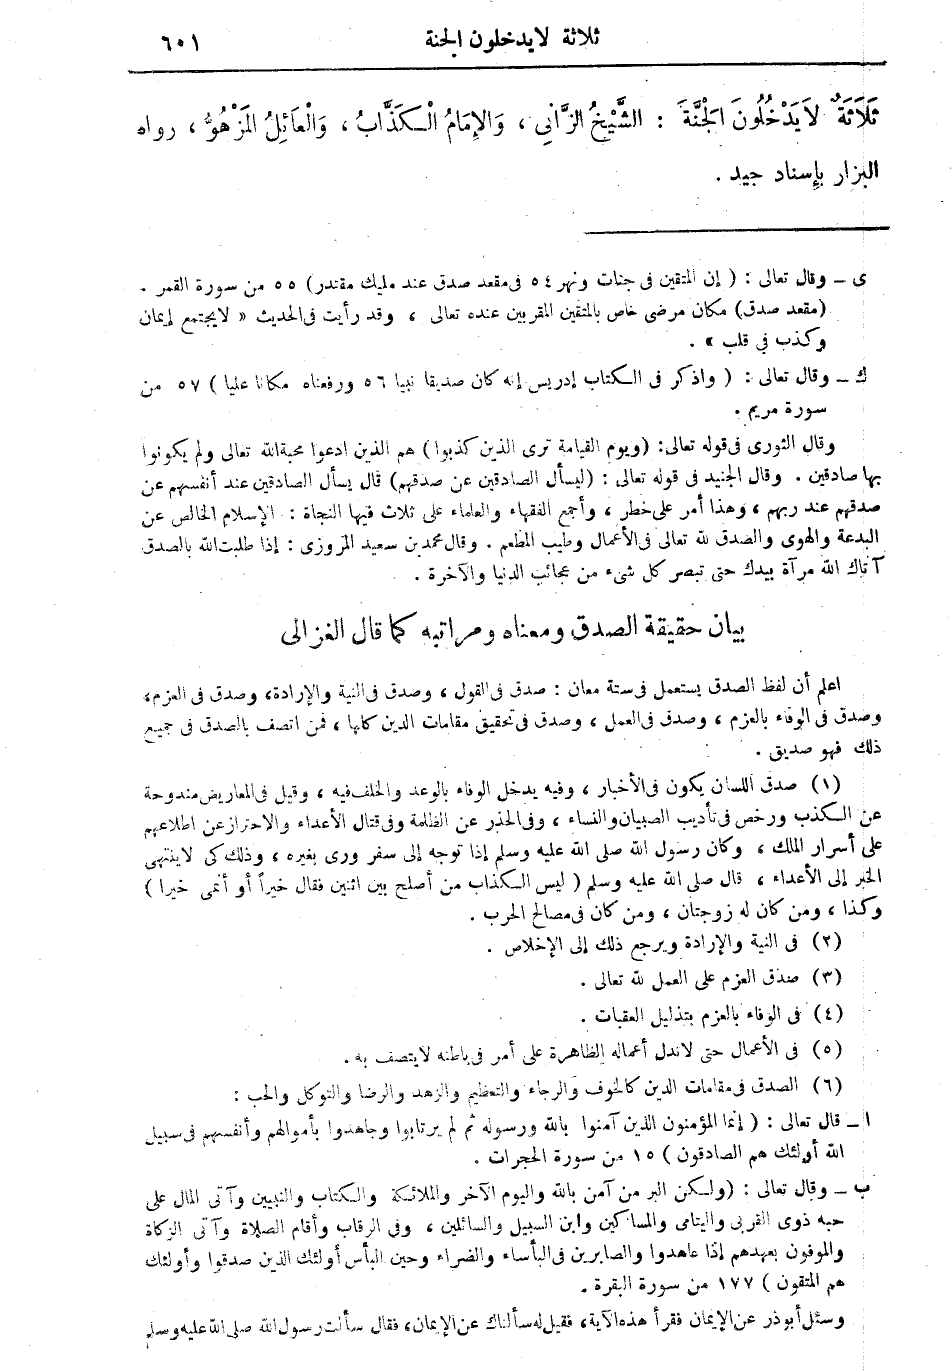 ثلاثة لايدخلون الجنة ٦٠١
ثَلَاثَةٌ لَايَدْخُلُونَ الْجَنَّةَ : الشَّيْخُ الزَّانِي ، وَالإِمَامُ الْكَذَّابُ ، وَالْعَائِلُ المَزْهُوُّ ، رواه
البزار بإسناد جيد .
ى ــ وقال تعالى : ( إن المتقين فى جنات ونهر ٥٤ فى مقعد صدق عند مليك مقتدر) ٥٥ من سورة القمر .
(مقعد صدق) مكان مرضى خاص بالمتقين المقربين عنده تعالى ، وقد رأيت فى الحديث « لايجتمع إيمان
وكذب فى قلب » .
ك ــ وقال تعالى : ( واذكر فى الكتاب إدريس إنه كان صديقا نبيا ٥٦ ورفعناه مكانا عليا ) ٥٧ من
سورة مريم .
وقال الثورى فى قوله تعالى: (ويوم القيامة ترى الذين كذبوا) هم الذين ادعوا محبة الله تعالى ولم يكونوا
بها صادقين . وقال الجنيد فى قوله تعالى : (ليسأل الصادقين عن صدقهم) قال يسأل الصادقين عند أنفسهم عن
صدقهم عند ربهم ، وهذا أمر على خطر ، وأجمع الفقهاء والعلماء على ثلاث فيها النجاة : الإسلام الخالص عن
البدعة والهوى والصدق لله تعالى فى الأعمال وطيب المطعم . وقال محمد بن سعيد المروزى : إذا طلبت الله بالصدق
آتاك الله مرآة بيدك حتى تبصر كل شىء من عجائب الدنيا والآخرة .
بيان حقيقة الصدق ومعناه ومراتبه كما قال الغزالى
اعلم أن لفظ الصدق يستعمل فى ستة معان : صدق فى القول ، وصدق فى النية والإرادة، وصدق فى العزم،
وصدق فى الوفاء بالعزم ، وصدق فى العمل ، وصدق فى تحقيق مقامات الدين كلها ، فمن اتصف بالصدق فى جميع
ذلك فهو صديق .
(١) صدق اللسان يكون فى الأخبار ، وفيه يدخل الوفاء بالوعد والخلف فيه ، وقيل فى المعاريض مندوحة
عن الكذب ورخص فى تأديب الصبيان والنساء ، وفى الحذر عن الظلمة وفى قتال الأعداء والاحتراز عن اطلاعهم
على أسرار الملك ، وكان رسول الله صلى الله عليه وسلم إذا توجه إلى سفر ورى بغيره ، وذلك كى لاينتهى
الخبر إلى الأعداء ، قال صلى الله عليه وسلم ( ليس الكذاب من أصلح بين اثنين فقال خيراً أو أنمى خيرا )
وكذا ، ومن كان له زوجتان ، ومن كان فى مصالح الحرب .
(٢) فى النية والإرادة ويرجع ذلك إلى الإخلاص .
(٣) صدق العزم على العمل لله تعالى .
(٤) فى الوفاء بالعزم بتذليل العقبات .
(٥) فى الأعمال حتى لاتدل أعماله الظاهرة على أمر فى باطنه لايتصف به .
(٦) الصدق فى مقامات الدين كالخوف والرجاء والتعظيم والزهد والرضا والتوكل والحب :
ا ــ قال تعالى : ( إنما المؤمنون الذين آمنوا بالله ورسوله ثم لم يرتابوا وجاهدوا بأموالهم وأنفسهم فى سبيل
الله أولئك هم الصادقون ) ١٥ من سورة الحجرات .
ب ــ وقال تعالى : (ولكن البر من آمن بالله واليوم الآخر والملائكة والكتاب والنبيين وآتى المال على
حبه ذوى القربى واليتامى والمساكين وابن السبيل والسائلين ، وفى الرقاب وأقام الصلاة وآتى الزكاة
والموفون بعهدهم إذا عاهدوا والصابرين فى البأساء والضراء وحين البأس أولئك الذين صدقوا وأولئك
هم المتقون ) ١٧٧ من سورة البقرة .
وسئل أبوذر عن الإيمان فقرأ هذه الآية، فقيل له سألناك عن الإيمان، فقال سألت رسول الله صلى الله عليه وسلم